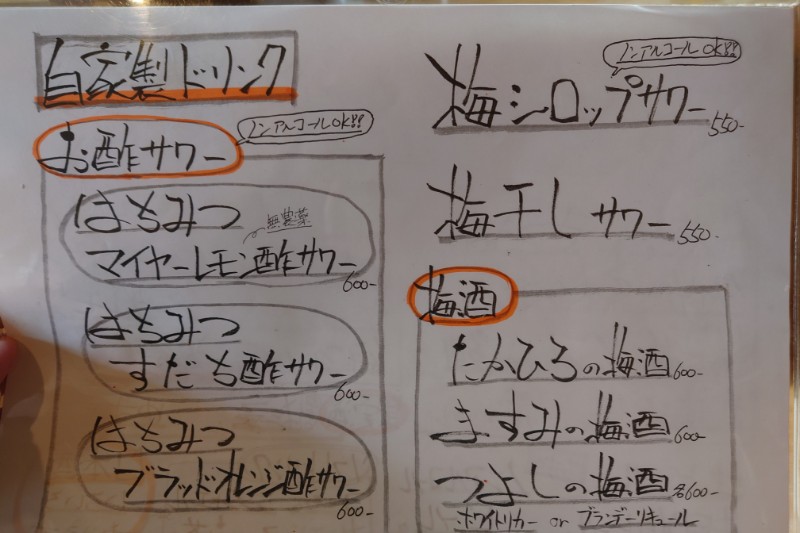 自家製ドリンク
お酢サワー
ノンアルコールOK!!
はちみつ
無農薬
マイヤーレモン酢サワー
600-
はちみつ
すだち酢サワー
600-
はちみつ
ブラッドオレンジ酢サワー
600-
ノンアルコールOK!!
梅シロップサワー 550-
梅干しサワー 550-
梅酒
たかひろの梅酒 600-
ますみの梅酒 600-
つよしの梅酒 各600-
ホワイトリカー or ブランデーリキュール